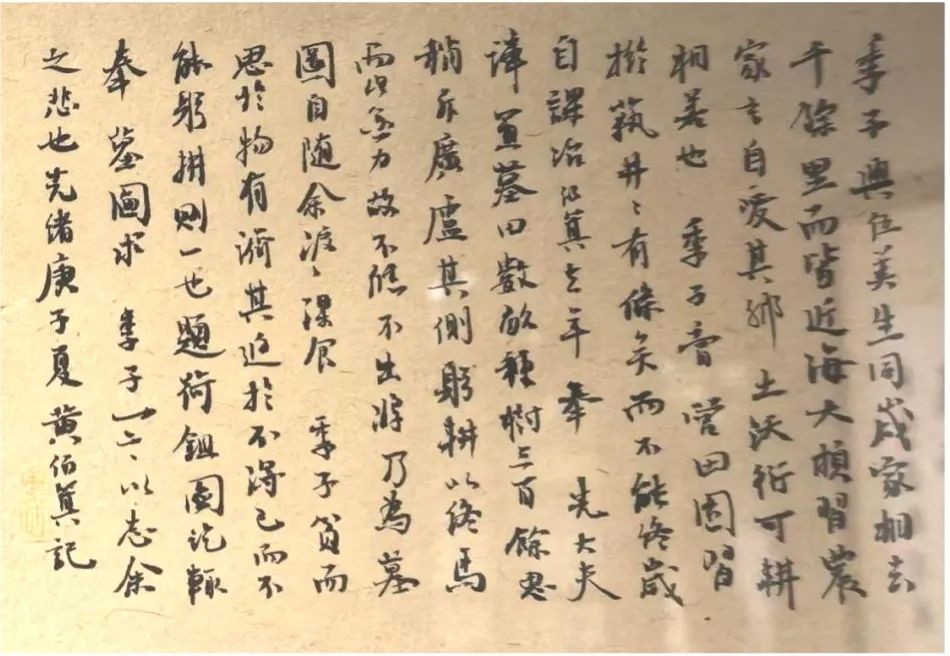 季子與隹美生同歲家相去
千餘里而皆近海大習農
家言自愛其鄉 土沃衍可耕
相若也 季子嘗 營田園習
於蓺井〻有條矣而不能終歲
自課治箕去年 奉 先大夫
諱置墓田數畝種樹三百餘思
稍斥廣廬其側躬耕以終焉
而無力故不能不出將乃為墓
圖自隨余〻課食 季子貧而
思於物有濟其迫於不得已而不
能躬耕則一也題荷鉏圖訖輒
奉 墓圖求 季子一言以志余
之悲也光緒庚子夏 黃伯箕記